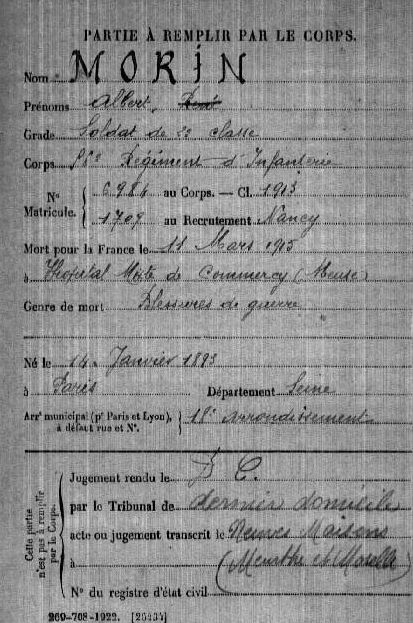 PARTIE À REMPLIR PAR LE CORPS.
Nom MORIN
Prénoms Albert, René
Grade Soldat de 2e classe
Corps Régiment d'Infanterie
N° Matricule. 6984 au Corps. — Cl. 1913
1709 au Recrutement Nancy
Mort pour la France le 11 Mars 1915
à Hôpital Mixte de Commercy (Meuse)
Genre de mort Blessures de guerre
Né le 14 Janvier 1893
à Paris Département Seine
Arrt municipal (pr Paris et Lyon), à défaut rue et N°. 18e arrondissement
Cette partie n'est pas à remplir par le Corps.
Jugement rendu le D C.
par le Tribunal de dernier domicile
acte ou jugement transcrit le Neuves Maisons
à (Meurthe et Moselle)
N° du registre d'état civil
269-708-1922. [25434]